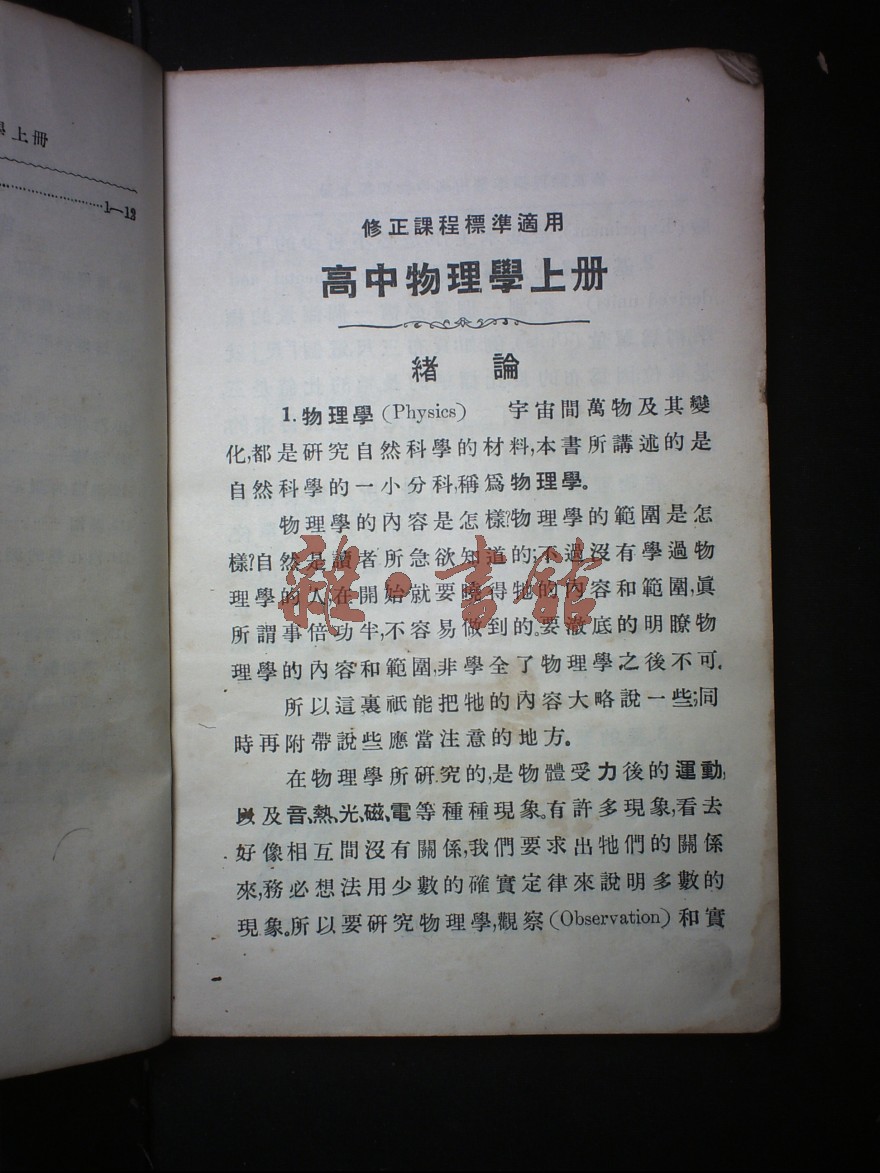 學上冊
1—12
修正課程標準適用
高中物理學上册
緒論
1. 物理學 (Physics) 宇宙間萬物及其變
化,都是研究自然科學的材料,本書所講述的是
自然科學的一小分科,稱爲物理學。
物理學的內容是怎樣?物理學的範圍是怎
樣?自然是讀者所急欲知道的;不過沒有學過物
理學的人,在開始就要曉得牠的內容和範圍,眞
所謂事倍功半,不容易做到的。要澈底的明瞭物
理學的內容和範圍,非學全了物理學之後不可.
所以這裏祇能把牠的內容大略說一些;同
時再附帶說些應當注意的地方。
在物理學所硏究的,是物體受力後的運動;
以及音、熱、光、磁、電等種種現象。有許多現象,看去
好像相互間沒有關係,我們要求出牠們的關係
來,務必想法用少數的確實定律來說明多數的
現象。所以要硏究物理學,觀察 (Observation) 和實
雜·書館